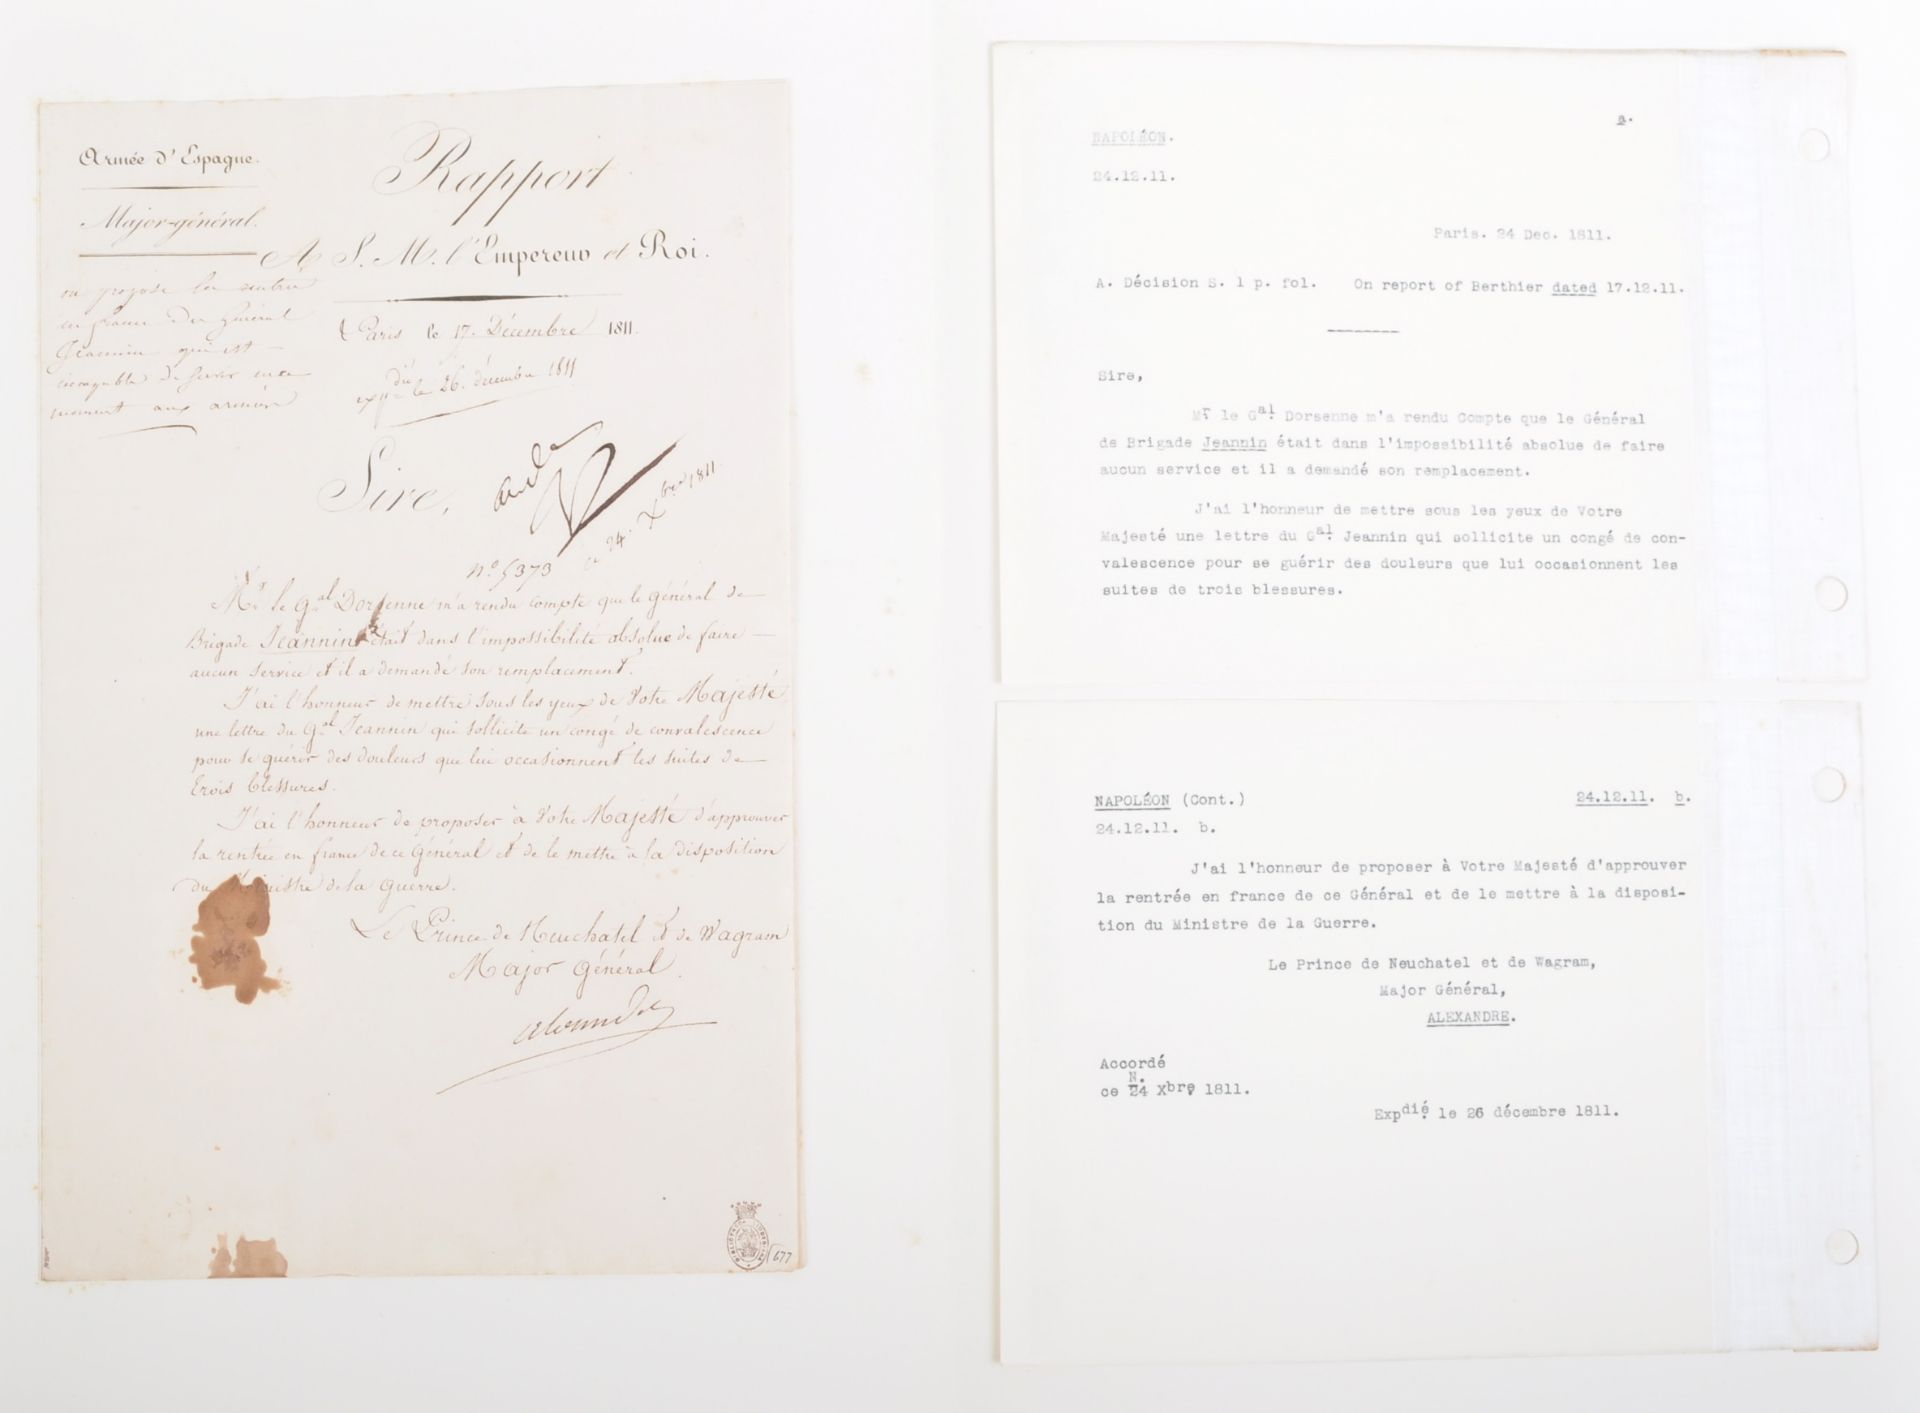 Armée d'Espagne.
Major-général.
Rapport
A S. M. l'Empereur et Roi.
on propose la rentrée
en france du général
Jeannin qui est
incapable de servir en ce
moment aux armées
à Paris le 17. Décembre 1811.
expdié le 26. décembre 1811
Sire,
accordé
N
ce 24. Xbre 1811
n.º 5373
Mr. le Gal. Dorsenne m'a rendu compte que le général de
Brigade Jeannin était dans l'impossibilité absolue de faire
aucun service et il a demandé son remplacement.
J'ai l'honneur de mettre sous les yeux de Votre Majesté
une lettre du Gal. Jeannin qui sollicite un congé de convalescence
pour se guérir des douleurs que lui occasionnent les suites de
trois blessures.
J'ai l'honneur de proposer à Votre Majesté d'approuver
la rentrée en france de ce Général et de le mettre à la disposition
du Ministre de la Guerre.
Le Prince de Neuchatel et de Wagram
Major général.
Alexandre
677
a.
NAPOLÉON.
24.12.11.
Paris. 24 Dec. 1811.
A. Décision S. 1 p. fol. On report of Berthier dated 17.12.11.
Sire,
Mr. le Gal. Dorsenne m'a rendu Compte que le Général
de Brigade Jeannin était dans l'impossibilité absolue de faire
aucun service et il a demandé son remplacement.
J'ai l'honneur de mettre sous les yeux de Votre
Majesté une lettre du Gal. Jeannin qui sollicite un congé de con-
valescence pour se guérir des douleurs que lui occasionnent les
suites de trois blessures.
NAPOLÉON (Cont.) 24.12.11. b.
24.12.11. b.
J'ai l'honneur de proposer à Votre Majesté d'approuver
la rentrée en france de ce Général et de le mettre à la disposi-
tion du Ministre de la Guerre.
Le Prince de Neuchatel et de Wagram,
Major Général,
ALEXANDRE.
Accordé
N.
ce 24 Xbre. 1811.
Expdié. le 26 décembre 1811.